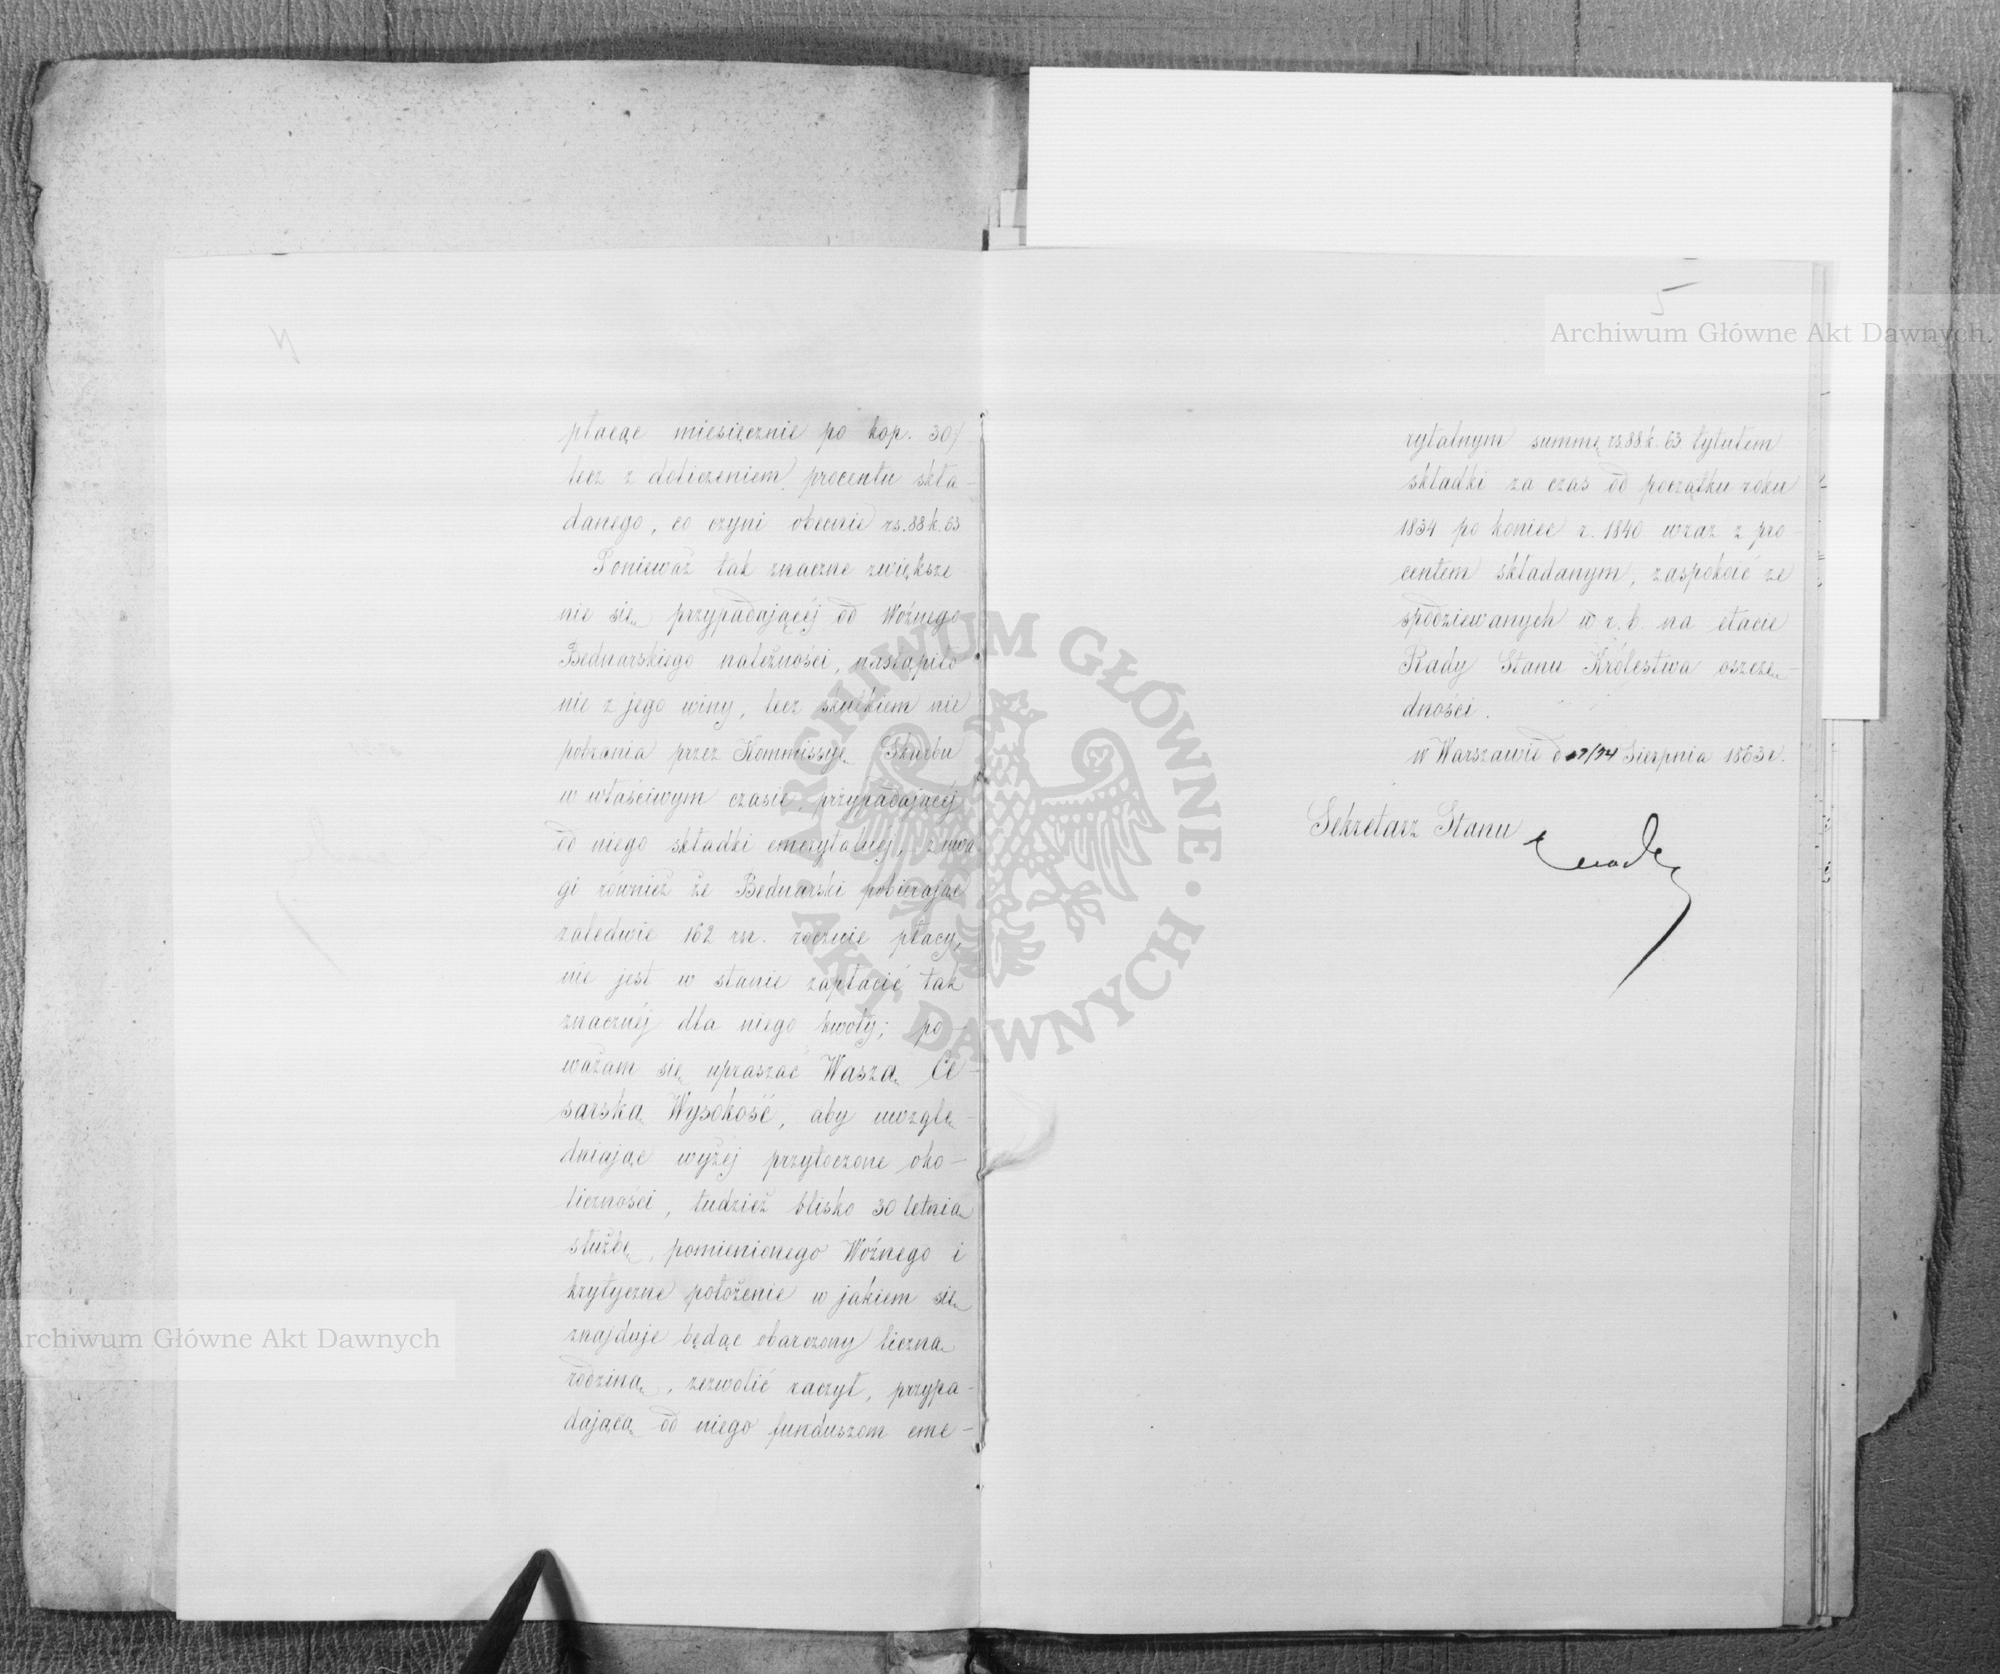 płacąc miesięcznie po kop. 30/
lecz z doliczeniem procentu skła-
danego, co czyni obecnie rs. 88 k. 63
Ponieważ tak znaczne zwiększe
nie się przypadającéj od Woźnego
Bednarskiego należności, nastąpiło
nie z jego winy, lecz skutkiem nie
pobrania przez Kommissyę Skarbu
w właściwym czasie, przypadającéj
od niego składki emerytalnéj, z uwa
gi również że Bednarski pobierając
zaledwie 162 rsr. rocznie płacy,
nie jest w stanie zapłacić tak
znacznéj dla niego kwoty; po-
ważam się upraszać Waszą Ce-
sarską Wysokość, aby uwzglę-
dniając wyżéj przytoczone oko-
liczności, tudzież blisko 30 letnią
służbę, pomienionego Woźnego i
krytyczne położenie w jakiem się
znajduje będąc obarczony liczną
rodziną, zezwolić raczył, przypa-
dającą od niego funduszom eme-
5
rytalnym summę rs. 88 k. 63 tytułem
składki za czas od początku roku
1834 po koniec r. 1840 wraz z pro-
centem składanym, zaspokoić ze
spodziewanych w r. b. na etacie
Rady Stanu Królestwa oszczę-
dności.
w Warszawie d /24 Sierpnia 1863 r.
Sekretarz Stanu
Archiwum Główne Akt Dawnych
Archiwum Główne Akt Dawnych
ARCHIWUM GŁÓWNE
AKT DAWNYCH